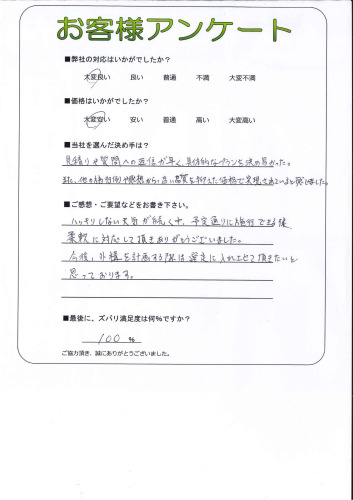 お客様アンケート
■弊社の対応はいかがでしたか？
大変良い 良い 普通 不満 大変不満
■価格はいかがでしたか？
大変安い 安い 普通 高い 大変高い
■当社を選んだ決め手は？
見積りや質問への返信が早く、具体的なプランを決め易かった。
また、他の施行例や感想から、高い品質を抑えた価格で実現されていると感じました。
■ご感想・ご要望などをお書き下さい。
ハッキリしない天気が続く中、予定通りに施行できる様
柔軟に対応して頂きありがとうございました。
今後、外構を計画する際は選定に入れさせて頂きたいと
思っております。
■最後に、ズバリ満足度は何％ですか？
100 ％
ご協力頂き、誠にありがとうございました。